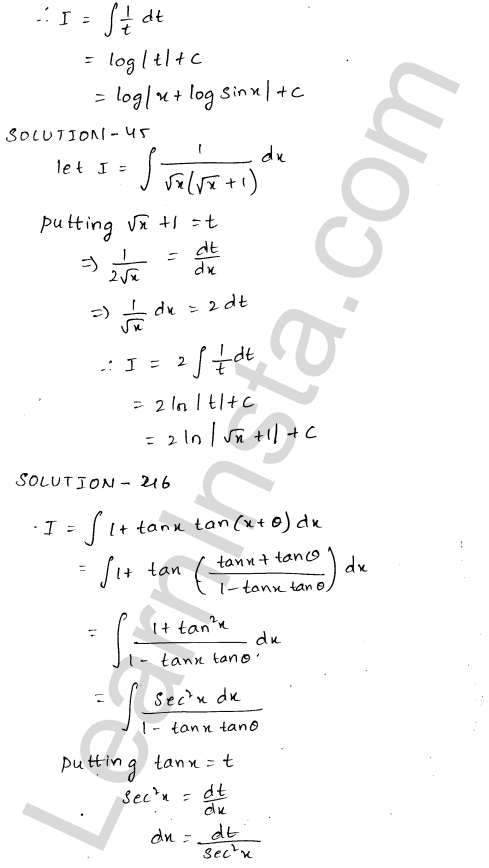 ∴ I = ∫ 1/t dt
= log|t|+c
= log|x + log sinx| + c
SOLUTION-45
let I = ∫ 1/(√x(√x+1)) dx
putting √x +1 = t
⇒ 1/(2√x) = dt/dx
⇒ 1/√x dx = 2dt
∴ I = 2 ∫ 1/t dt
= 2 ln |t|+c
= 2 ln |√x +1| + c
SOLUTION - 246
I = ∫ 1+ tanx tan(x+θ) dx
= ∫ 1+ tan ( (tanx + tanθ)/(1-tanx tanθ) ) dx
= ∫ (1+ tan²x)/(1- tanx tanθ) dx
= ∫ (sec²x dx)/(1- tanx tanθ)
putting tanx = t
sec²x = dt/dx
dx = dt/sec²x
LearnInsta.com